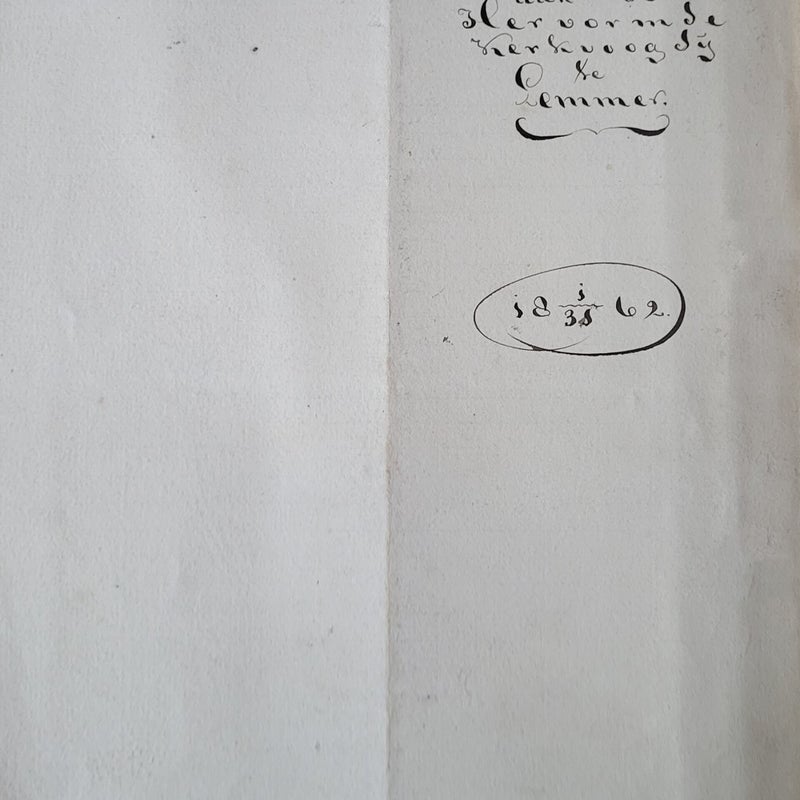 Hervormde
Kerkvoogdÿ
te
Lemmer.
18 1/31 62.